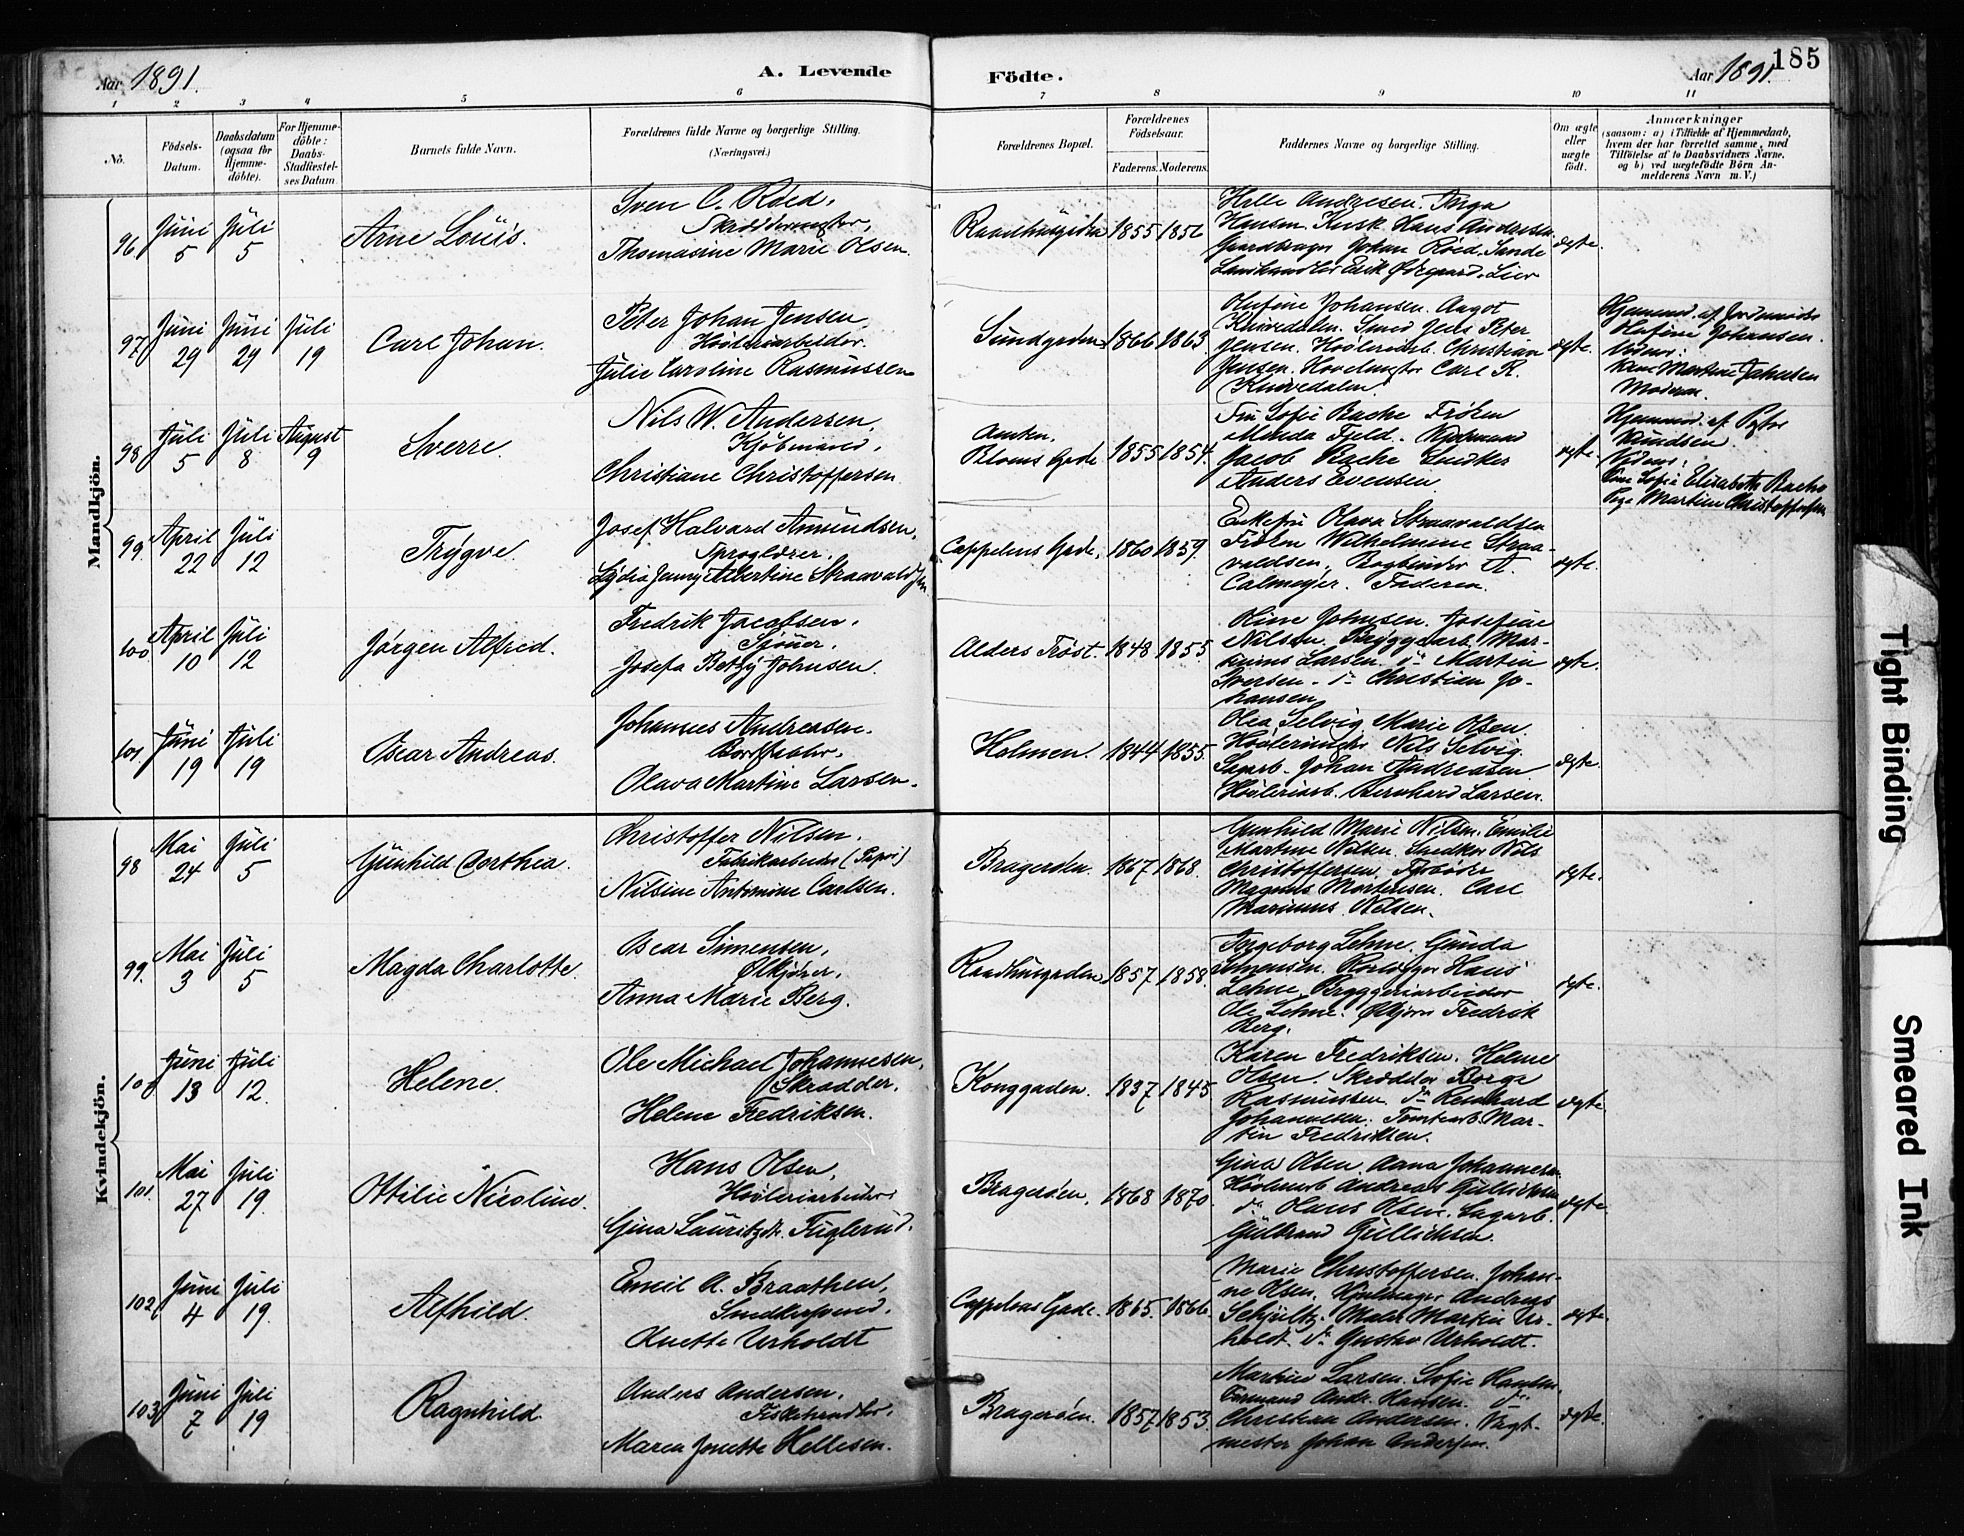 Aar 1891. A. Levende Födte. Aar 1891. 185
1 2 3 4 5 6 7 8 9 10 11
No. Födsels-Datum. Daabsdatum (ogsaa for Hjemme-döbte). For Hjemme-döbte: Daabs-Stadfæstel-ses Datum Barnets fulde Navn. Forældrenes fulde Navne og borgerlige Stilling. (Næringsvei.) Forældrenes Bopæl. Forældrenes Födselsaar. Faderens. Moderens. Faddernes Navne og borgerlige Stilling. Om ægte eller uægte födt. Anmærkninger (saasom: a) i Tilfælde af Hjemmedaab, hvem der har forrettet samme, med Tilföielse af to Daabsvidners Navne, og b) ved uægtefödte Börn An-melderens Navn m. V.)
Mandkjön.
96. Juni 5 Juli 5 Arne Louis.
Sven C. Röed,
Thomasine Marie Olsen.
1855 1856
Helle Andresen. Inga
Hansen. Kusk Hans Andersen
Johan Röed, Sande
Landhandler Erik Ødegaard, Lier
ægte.
97 Juni 29 Juni 29 Juli 19 Carl Johan.
Peter Johan Jensen,
Høvleriarbeider.
Julie Caroline Rasmussen
Sundgaden 1866 1863
Olufine Johansen. Aagot
Knivedalen. Smed Jens Peter
Jensen. Høvleriarb. Christian
Jensen. Carl R.
Knivedalen.
ægte.
Hjemmed. af Jordemoder
Olufine Johansen.
Moderen.
98 Juli 5 Juli 8 August 9 Sverre.
Nils W. Andersen,
Kjøbmand,
Christiane Christoffersen
Bloms Gade 1855 1854.
Fru Sofie Bache Frøken
Minda Fjeld. Kjøbmand
Jacob Bache Snedker
Anders Evensen
ægte.
Hjemmed. af
Knudsen
Sofie Elisabeth Bache
Martine Christoffersen
99. April 22 Juli 12 Trygve.
Josef Halvard Amundsen,
Lydia Jenny Albertine Straavaldsen
Cappelens Gade, 1860 1859.
Enkefru Olava Straavaldsen
Frøken Wilhelmine Straa-
valdsen, Bogbinder A.
Calmeyer. Faderen.
ægte.
100 April 10 Juli 12 Jørgen Alfred.
Fredrik Jacobsen,
Josefa Betzy Johnsen.
Alders Trøst. 1848 1855.
Line Johnsen. Josefine
Nilsen. Bryggearb. Mar-
Larsen. do Martin
Iversen. do Christian Jo-
hansen
ægte.
101 Juni 19 Juli 19 Oscar Andreas.
Johannes Andreasen.
Olava Martine Larsen.
Holmen. 1844 1855.
Olea Selvig Marie Olsen.
Nils Selvig.
Sagarb. Johan Andreasen
Høvleriarb. Bernhard Larsen.
ægte.
Kvindekjön.
98 Mai 24 Juli 5 Gunhild Dorthea.
Christoffer Nilsen,
Fabrikarbeider (Papir)
Nilsine Antomine Carlsen.
Bragerøen. 1867 1868.
Gunhild Marie Nilsen. Emilie
Martine Nilsen. Snedker Nils
Christoffersen. Fyrbøder
Magnus Mortensen. Carl
Marinius Nilsen.
ægte.
99. Mai 3 Juli 5 Magda Charlotte.
Oscar Simensen,
Ølkjører,
Anna Marie Berg.
Raadhusgaden 1857 1858.
Ingeborg Lehne. Gunda
Simensen. Hans
Lehne. Bryggeriarbeider
Ole Lehne. Ølkjører Fredrik
Berg.
ægte.
100 Juni 13 Juli 12. Helene.
Ole Michael Johannesen,
Skrædder,
Helene Fredriksen.
Konggaden. 1837 1845
Karen Fredriksen. Helene
Olsen. Skrædder Børge
Rasmussen. do Reinhard
Johannesen. Tomtearb. Mar-
tin Fredriksen.
ægte
101. Mai 27 Juli 19. Ottilie Nicoline.
Hans Olsen,
Høvleriarbeider
Gina Lauritzdr. Fuglerud.
Bragerøen. 1868 1870.
Gina Olsen. Anna Johannesen
Høvleriarb Andreas Gullichsen
do Hans Olsen. Sagarb.
Gulbrand Gullichsen.
ægte.
102 Juni 4 Juli 19. Alfhild.
Emil A. Braathen,
Snedkersvend.
Anette Urholdt
Cappelens Gade. 1865. 1866.
Marie Christoffersen. Johan-
ne Olsen. Andreas
Schjultz. Maler Martin Ur-
holdt. do Gustav Urholdt.
ægte.
103 Juni 7 Juli 19 Ragnhild.
Anders Andersen.
Fiskehandler.
Maren Jonette Hellesen.
Bragerøen. 1857 1853.
Martine Larsen. Sofie Hansen.
Formand Andr. Hansen. do
Christian Andersen. Vagt-
mester Johan Andersen.
ægte.
Tight Binding
Smeared Ink